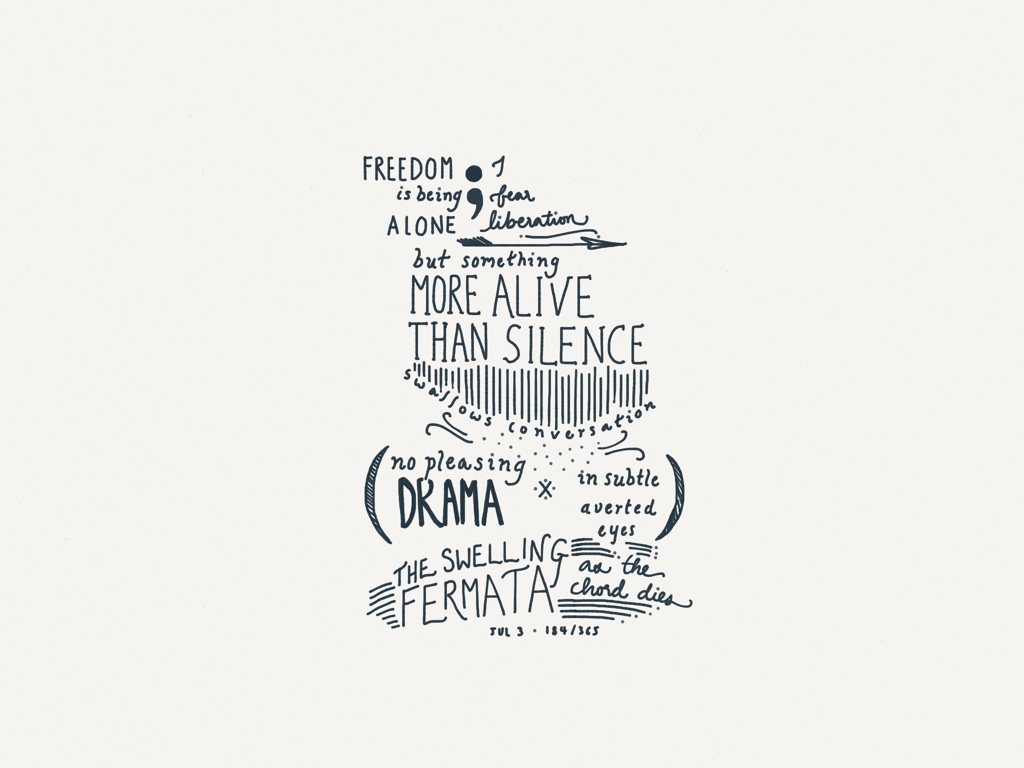 FREEDOM
is being
ALONE
;
I
fear
liberation
but something
MORE ALIVE
THAN SILENCE
swallows conversation
(no pleasing
DRAMA
in subtle
averted
eyes)
THE SWELLING
FERMATA
as the
chord dies
JUL 3 · 184/365